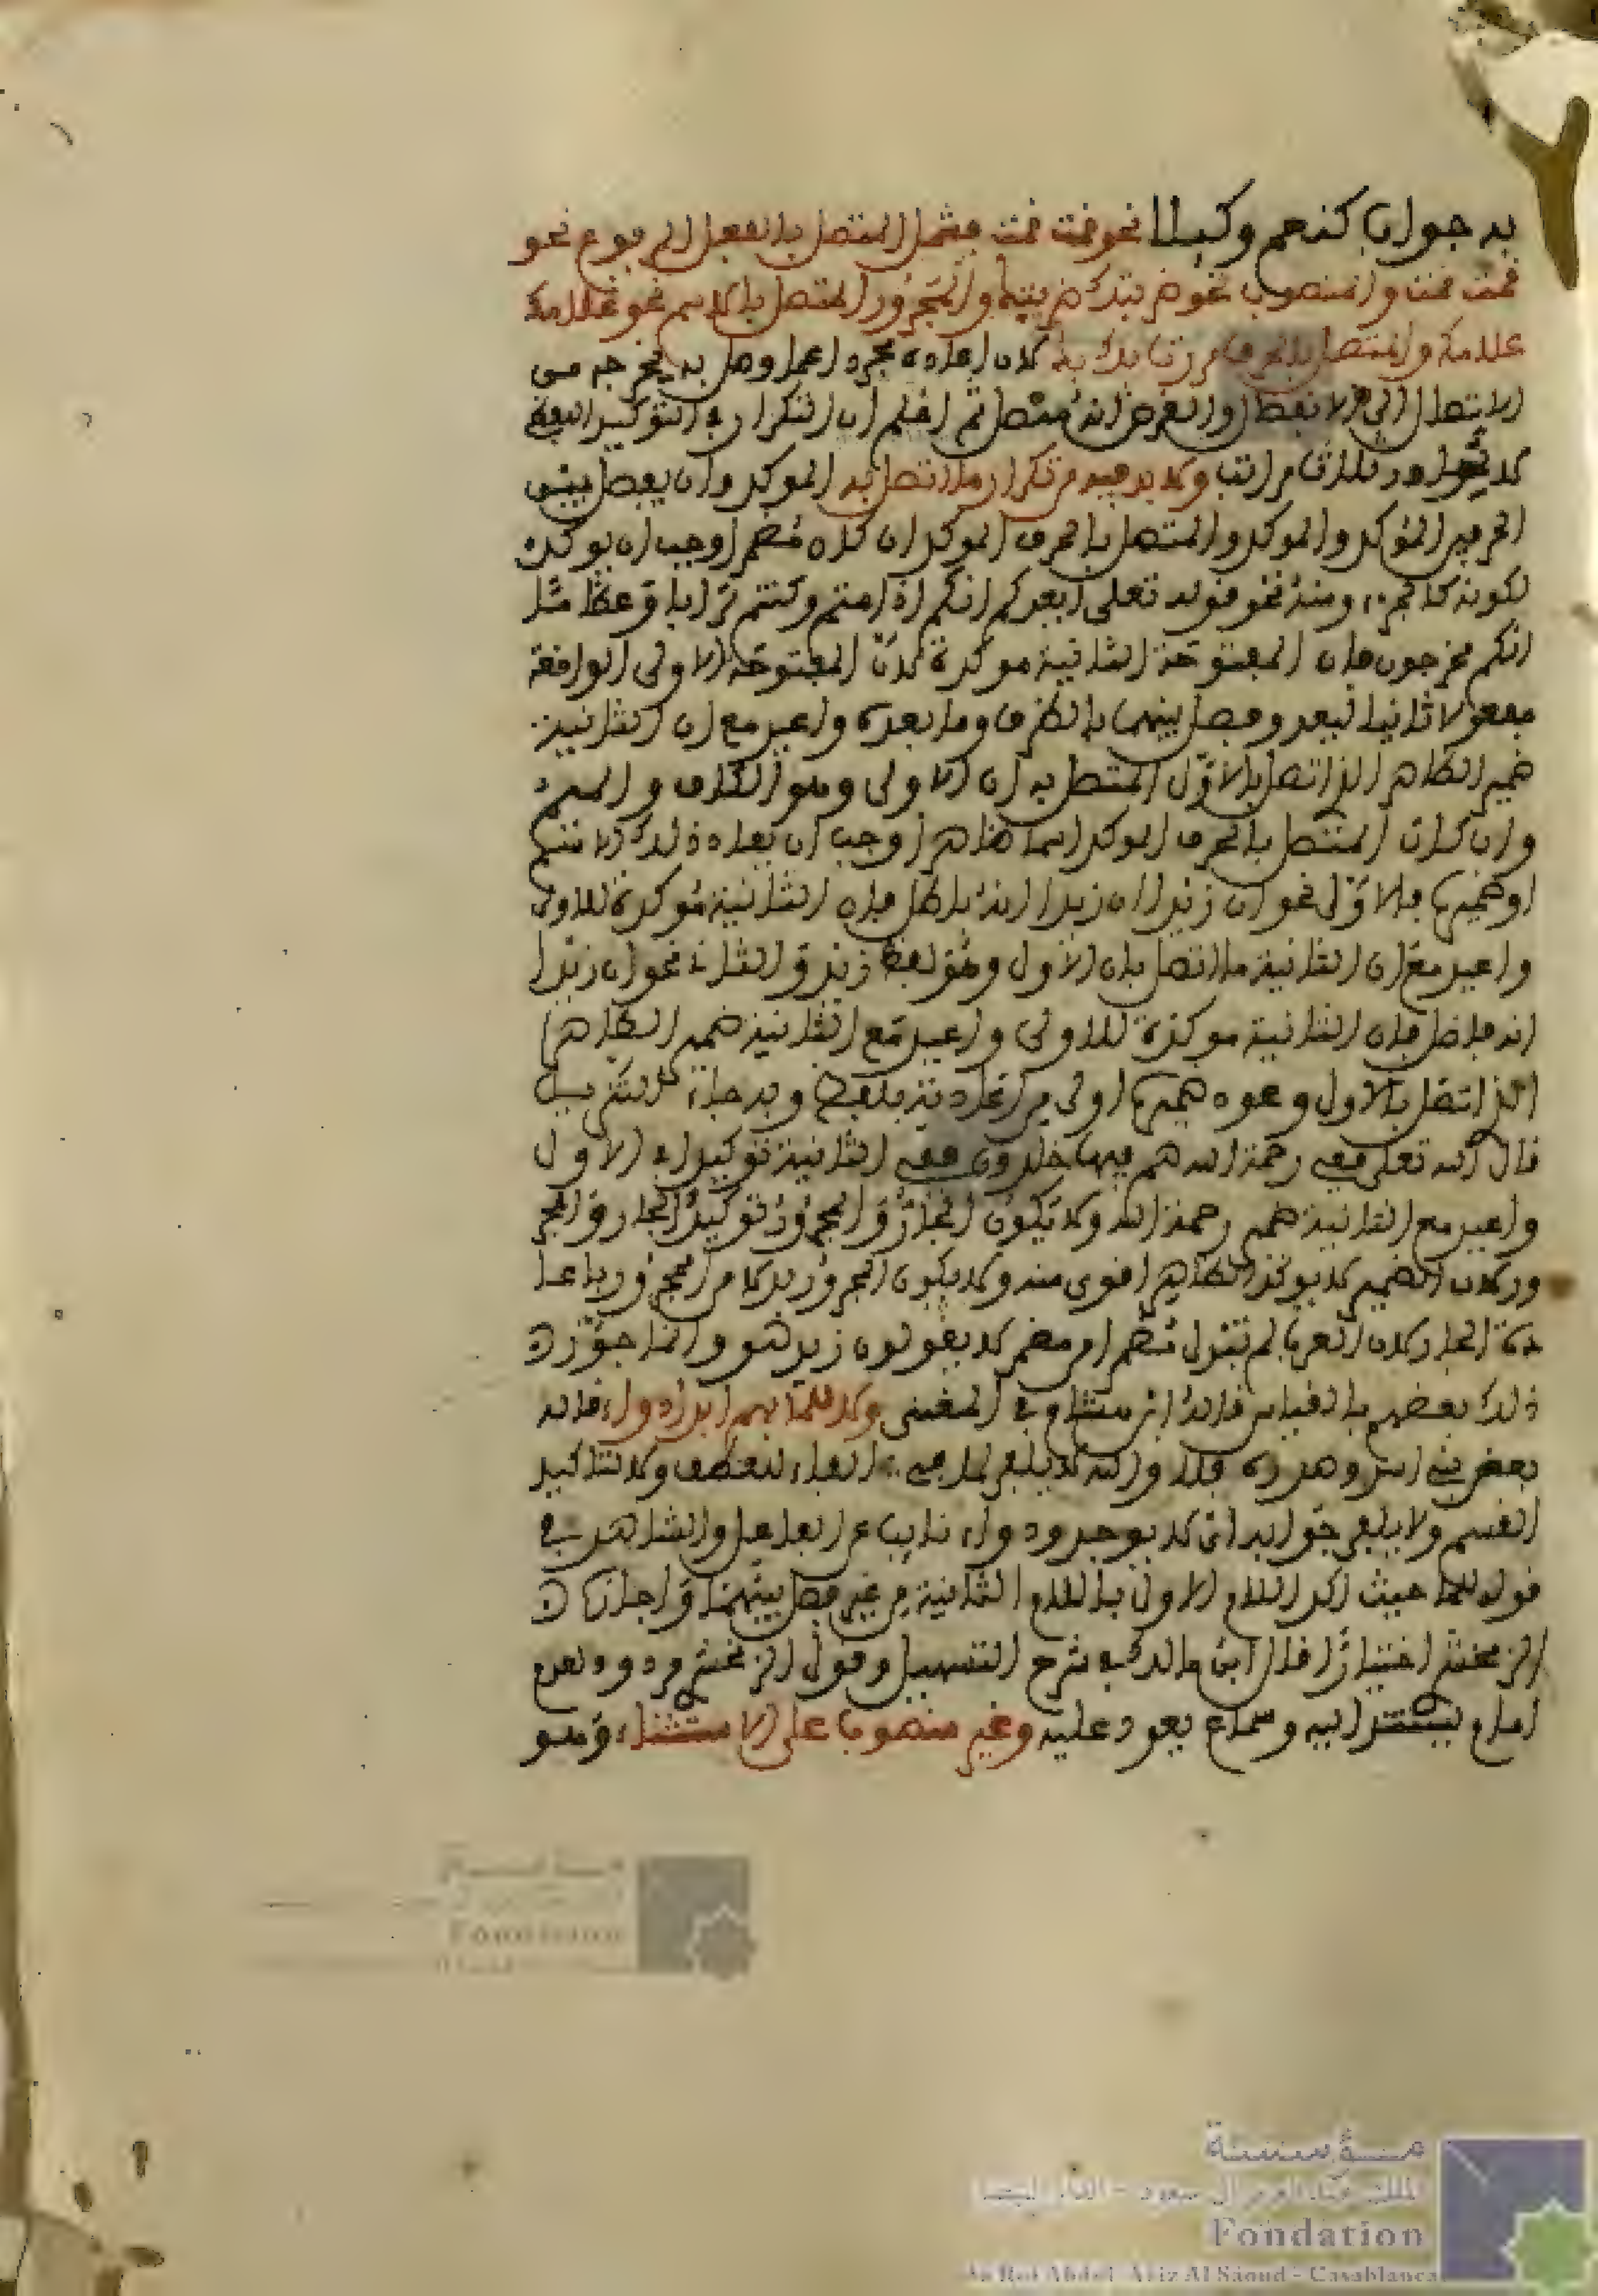 به جواب كنعم وكبلا نحو قمت قمت فيشمل المتصل بالفعل المرفوع نحو
قمت قمت والمنصوب نحو ضربتك ضربتك والمجرور المتصل بالاسم نحو غلامك
غلامك والمتصل بالحرف مررت بك بك لان اعادته مجردا عما وصل به يخرجه من
الاتصال الى الانفصال والغرض انه متصل ثم اعلم ان التكرار في التوكيد اللفظي
لا يتجاوز ثلاث مراتب ولا بد فيه من تكرار ما اتصل به الموكد وان يفصل بين
الحرفين المؤكد والموكد والمتصل بالحرف الموكد ان كان مضمرا وجب ان يوكد
لكونه كالجزء ومنه نحو قوله تعلى ايعدكم انكم اذا متم وكنتم ترابا وعظاما
انكم مخرجون فان المفتوحة الثانية موكدة لان المفتوحة الاولى الواقعة
مفعولا ثانيا ليعد وفصل بينهما بالظرف وما بعده واعيد مع ان الثانية
ضمير الظاهر الذي اتصل بالاول المتصل به ان الاولى وهو الكاف والميم
وان كان المتصل بالحرف الموكد اسما ظاهرا وجب ان يعاد ذلك الاسم
او ضميره فالاول نحو ان زيدا ان زيدا فاضل فان الثانية موكدة للاولى
واعيد مع ان الثانية ما اتصل بان الاول وهو لفظ زيد والثاني نحو ان زيدا
انه فاضل فان الثانية موكدة للاولى واعيد مع الثانية ضمير الظاهر
الذي اتصل بالاول وعود ضميره اولى من اعادته بلفظه وبه جاء التنزيل
قال الله تعلى ففي رحمة الله هم فيها خالدون ففي الثانية توكيد لفي الاول
واعيد مع الثانية ضمير رحمة الله ولا يكون الجار والمجرور توكيدا للجار والمجر
ور لان الضمير لا يوكد الظاهر اقوى منه ولا يكون المجرور بدلا من المجرور باعا
دة الجار لان العرب لم تبدل مضمرا من مضمر لا يقولون زيد هو وانما جوز
ذلك بعضهم بالقياس قاله ابن هشام في المغني ولا للما بهم ابدا دواء قاله
بعض بني اسد وصدره فلا والله لا يلفى لما بي الفاء للعطف ولا لتاكيد
القسم ولا يلفى جوابه اي لا يوجد ودواء نايب عن الفاعل والشاهد في
قوله للما حيث اكد اللام الاولى باللام الثانية من غير فصل بينهما واجاز
الزمخشري اختيارا قال ابن مالك في شرح التسهيل وقول الزمخشري مردود لعدم
امام يستند اليه وسماع يعود عليه وغير منصوب على الاستثناء وهو
مؤسسة
الملك عبد العزيز آل سعود - الدار البيضاء
Fondation
du Roi Abdul-Aziz Al Saoud - Casablanca